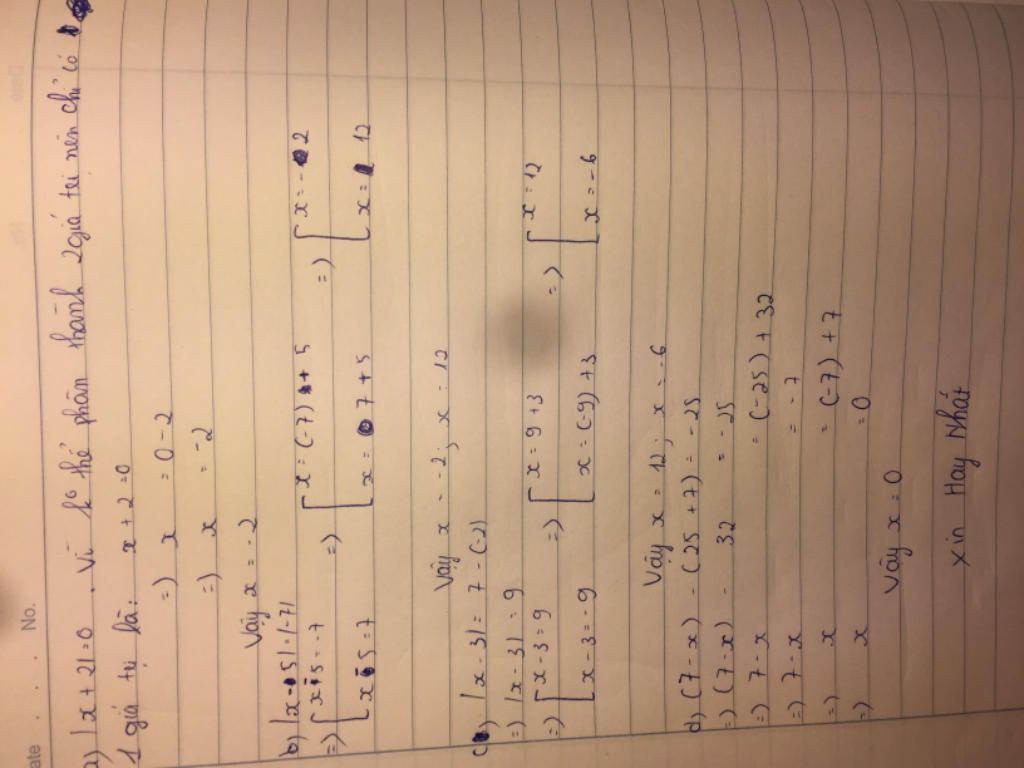 Date No.
a) |x + 2| = 0 . Vì k° thể phân thành 2 giá trị nên chỉ có
1 giá trị là: x + 2 = 0
=) x = 0 - 2
=) x = -2
Vậy x = -2
b) |x - 5| = |-7|
=) [x - 5 = -7 =) [x = (-7) + 5 =) [x = -2
[x - 5 = 7 [x = 7 + 5 [x = 12
Vậy x = -2; x = 12
c) |x - 3| = 7 - (-2)
=) |x - 3| = 9
=) [x - 3 = 9 =) [x = 9 + 3 =) [x = 12
[x - 3 = -9 [x = (-9) + 3 [x = -6
Vậy x = 12; x = -6
d) (7 - x) - (25 + 7) = -25
=) (7 - x) - 32 = -25
=) 7 - x = (-25) + 32
=) 7 - x = -7
=) x = (-7) + 7
=) x = 0
Vậy x = 0
Xin Hay Nhất